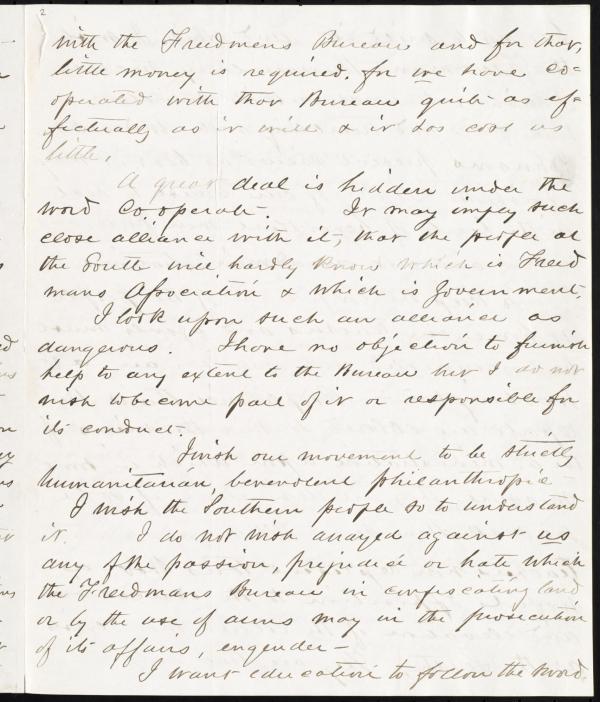 2
with the Freedmens Bureau and for that,
little money is required, for we have co=
operated with that Bureau quite as ef=
fectually as it will & it has cost us
little.
A great deal is hidden under the
word Co.operate. It may imply such
close alliance with it, that the people at
the South will hardly know which is Freed
mans Association & which is Government.
I look upon such an alliance as
dangerous. I have no objection to furnish
help to any extent to the Bureau but I do not
wish to become part of it or responsible for
its conduct.
I wish our movement to be strictly
humanitarian, benevolent philanthropic
I wish the Southern people so to understand
it. I do not wish arrayed against us
any of the passion, prejudice or hate which
the Freedmans Bureau in confiscating land
or by the use of arms may in the prosecution
of its affairs, engender—
I want education to follow the sword.